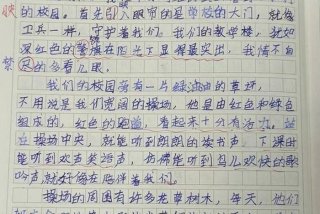 的校园。首先映入眼帘的是学校的大门，就像
卫兵一样，守护着我们。我们的教学楼，就如
深红色的警 在阳光下显得最突出，我情不自
禁的多看几眼。
我们的校园有一片绿油油的草坪，
不用说是我们宽阔的操场，他是由红色和绿色
组成的，红色的跑道，看起来十分有活力。站
在操场中央，就能听到朗朗的读书声，下课时
能听到欢声笑语声，仿佛能听到鸟儿欢快的歌
吟声就好像在陪伴着我们。
操场的周围有许多花草树木，每天，他们